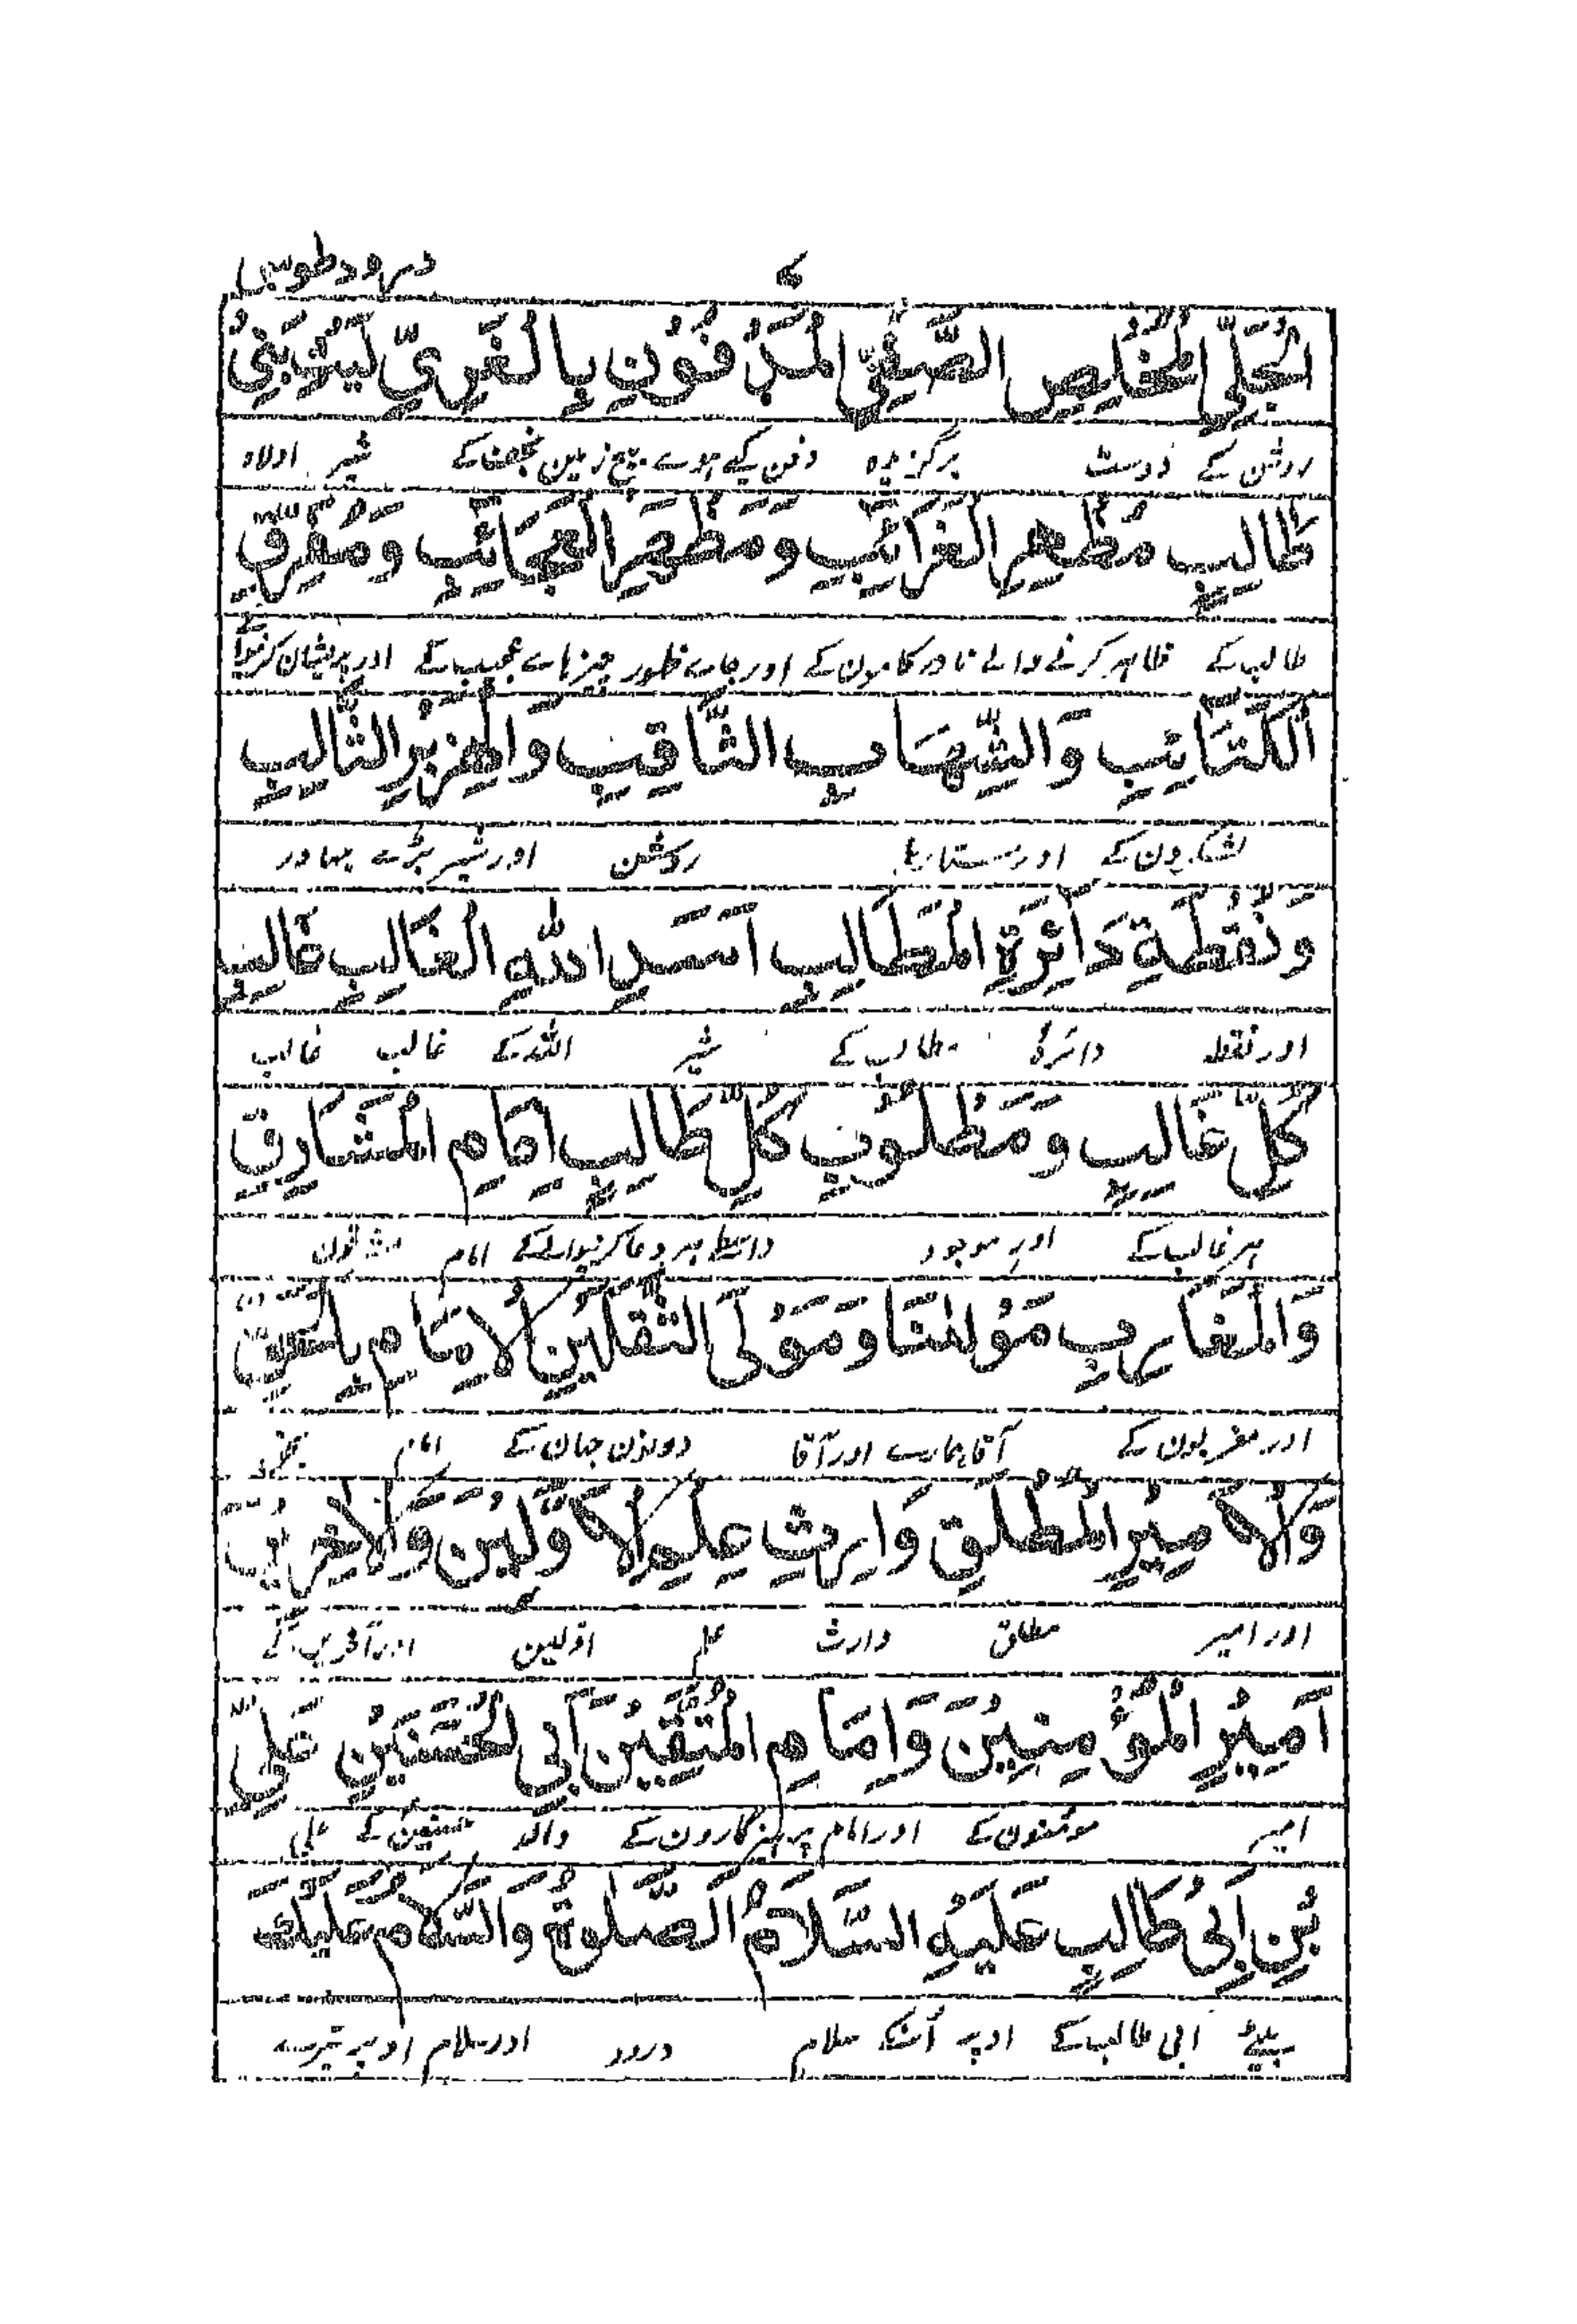 درود طوسی
۷
الْجَلِيِّ الْمُخْلِصِ الصَّفِيِّ الْمَدْفُوْنِ بِالْغَرِيِّ لَيْثِ بَنِيْ
روشن کے دوست برگزیدہ دفن کیے ہوے بیچ زمین نجف کے شیر اولاد
طَالِبٍ مُظْهِرِ الْغَرَائِبِ وَمَظْهَرِ الْعَجَائِبِ وَمُفَرِّقِ
طالب کے ظاہر کرنے والے نادر کامون کے اور جاے ظہور چیز ہاے عجیب کے اور پریشان کرنیوالے
الْكَتَائِبِ وَالشِّهَابِ الثَّاقِبِ وَالْهِزَبْرِ السَّالِبِ
لشکرون کے اور ستارہ روشن اور شیر بڑے بہادر
وَنُقْطَةِ دَائِرَةِ الْمَطَالِبِ اَسَدِ اللهِ الْغَالِبِ غَالِبِ
اور نقطہ دائرۂ مطالب کے شیر اللہ کے غالب غالب
كُلِّ غَالِبٍ وَمَطْلُوْبِ كُلِّ طَالِبٍ اِمَامِ الْمَشَارِقِ
ہر غالب کے اور موجود واسطے ہر دعا کرنیوالے کے امام مشرقون
وَالْمَغَارِبِ مَوْلٰنَا وَمَوْلَى الثَّقَلَيْنِ الْاِمَامِ بِالْحَقِّ
اور مغربون کے آقا ہمارے اور آقا دونون جہان کے امام
وَالْاَمِيْرِ الْمُطْلَقِ وَارِثِ عِلْمِ الْاَوَّلِيْنَ وَالْاٰخِرِيْنَ
اور امیر مطلق وارث علم اوّلین اور آخرین کے
اَمِيْرِ الْمُؤْمِنِيْنَ وَاِمَامِ الْمُتَّقِيْنَ اَبِى الْحَسَنَيْنِ عَلِيِّ
امیر مومنون کے اور امام پرہیزگارون کے والد حسنین کے علی
بْنِ اَبِىْ طَالِبٍ عَلَيْهِ السَّلَامُ الصَّلٰوةُ وَالسَّلَامُ عَلَيْكَ
بیٹے ابی طالب کے اوپر اُنکے سلام درود اور سلام اوپر تیرے